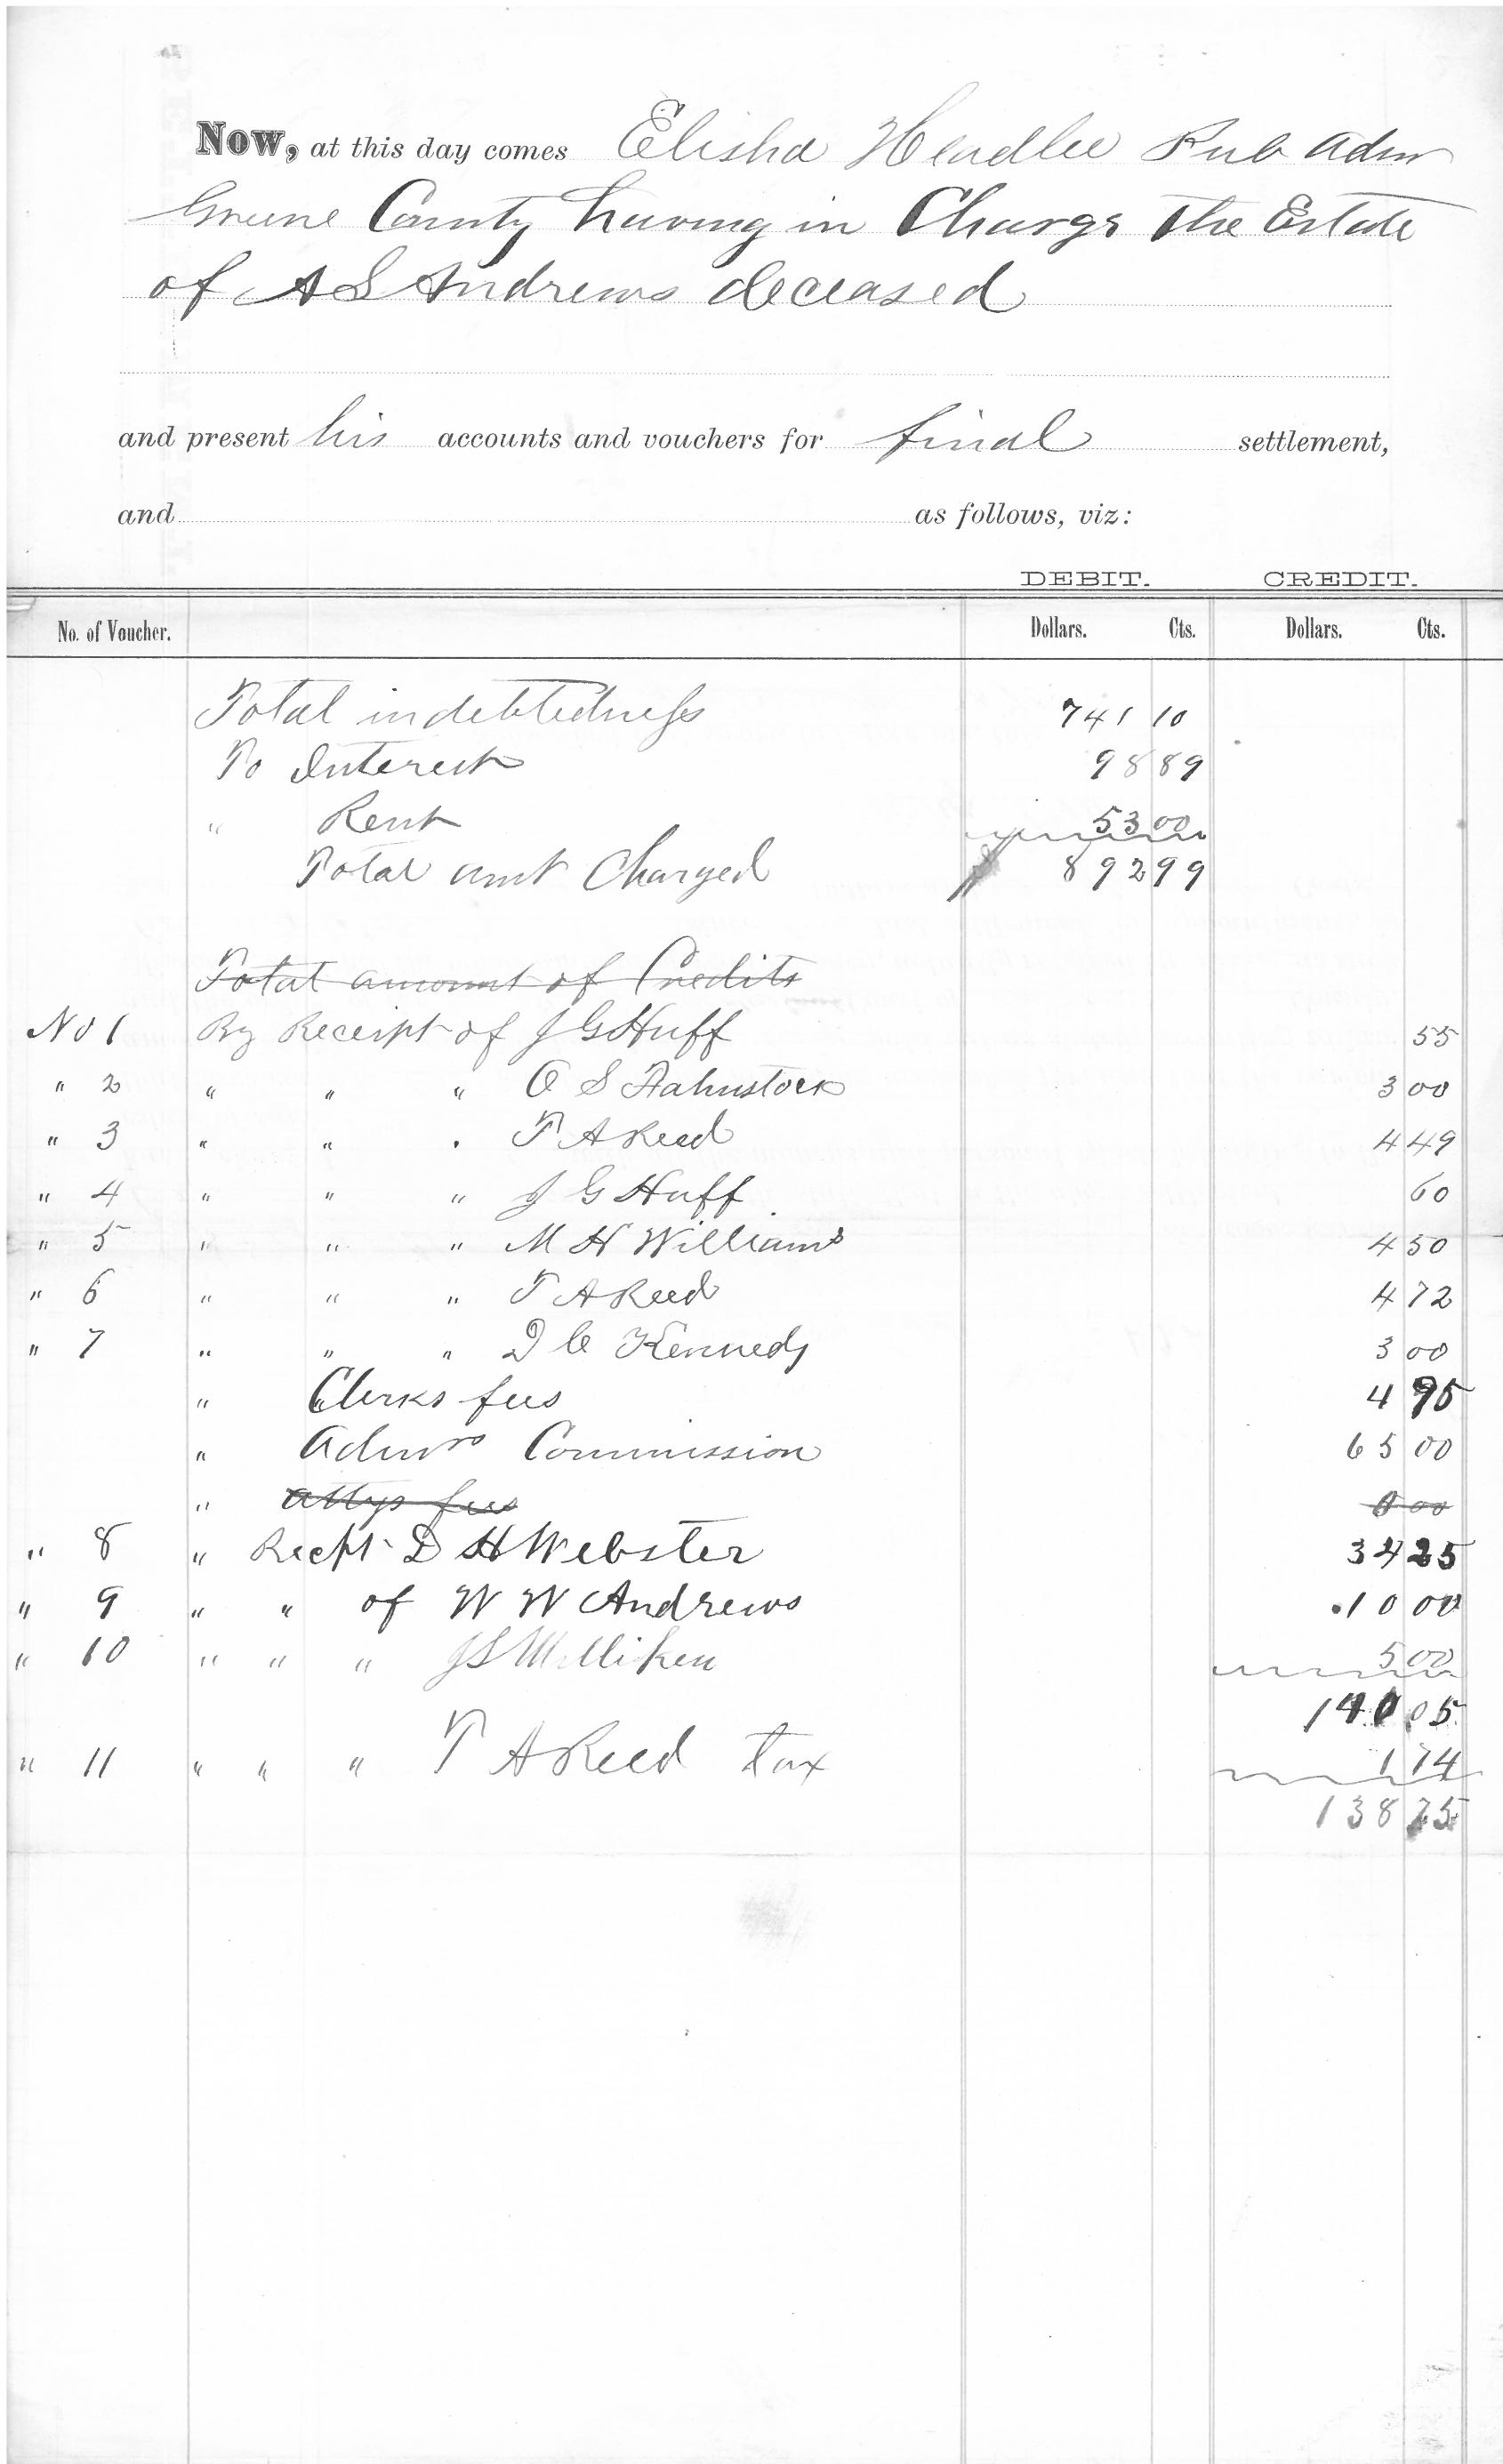 Now, at this day comes Elisha Headlee Pub Adm
Greene County having in Charge the Estate
of A S Andrews deceased
and present his accounts and vouchers for final settlement,
and as follows, viz:
DEBIT. CREDIT.
No. of Voucher. Dollars. Cts. Dollars. Cts.
Total indebtedness 741 10
To Interest 98 89
" Rent 53 00
Total amt Charged $ 892 99
Total amount of Credits
No 1 By Receipt of J G Huff 55
" 2 " " " O S Fahnstock 3 00
" 3 " " " T A Reed 4 49
" 4 " " " J G Huff 60
" 5 " " " M H Williams 4 50
" 6 " " " T A Reed 4 72
" 7 " " " D C Kennedy 3 00
" Clerks fees 4 95
" Admrs Commission 65 00
" Attys fees
" 8 " Recpt D H Webster 34 25
" 9 " " of W W Andrews 10 00
" 10 " " " J S Milliken 5 00
05
" 11 " " " T A Reed tax 1 74
138